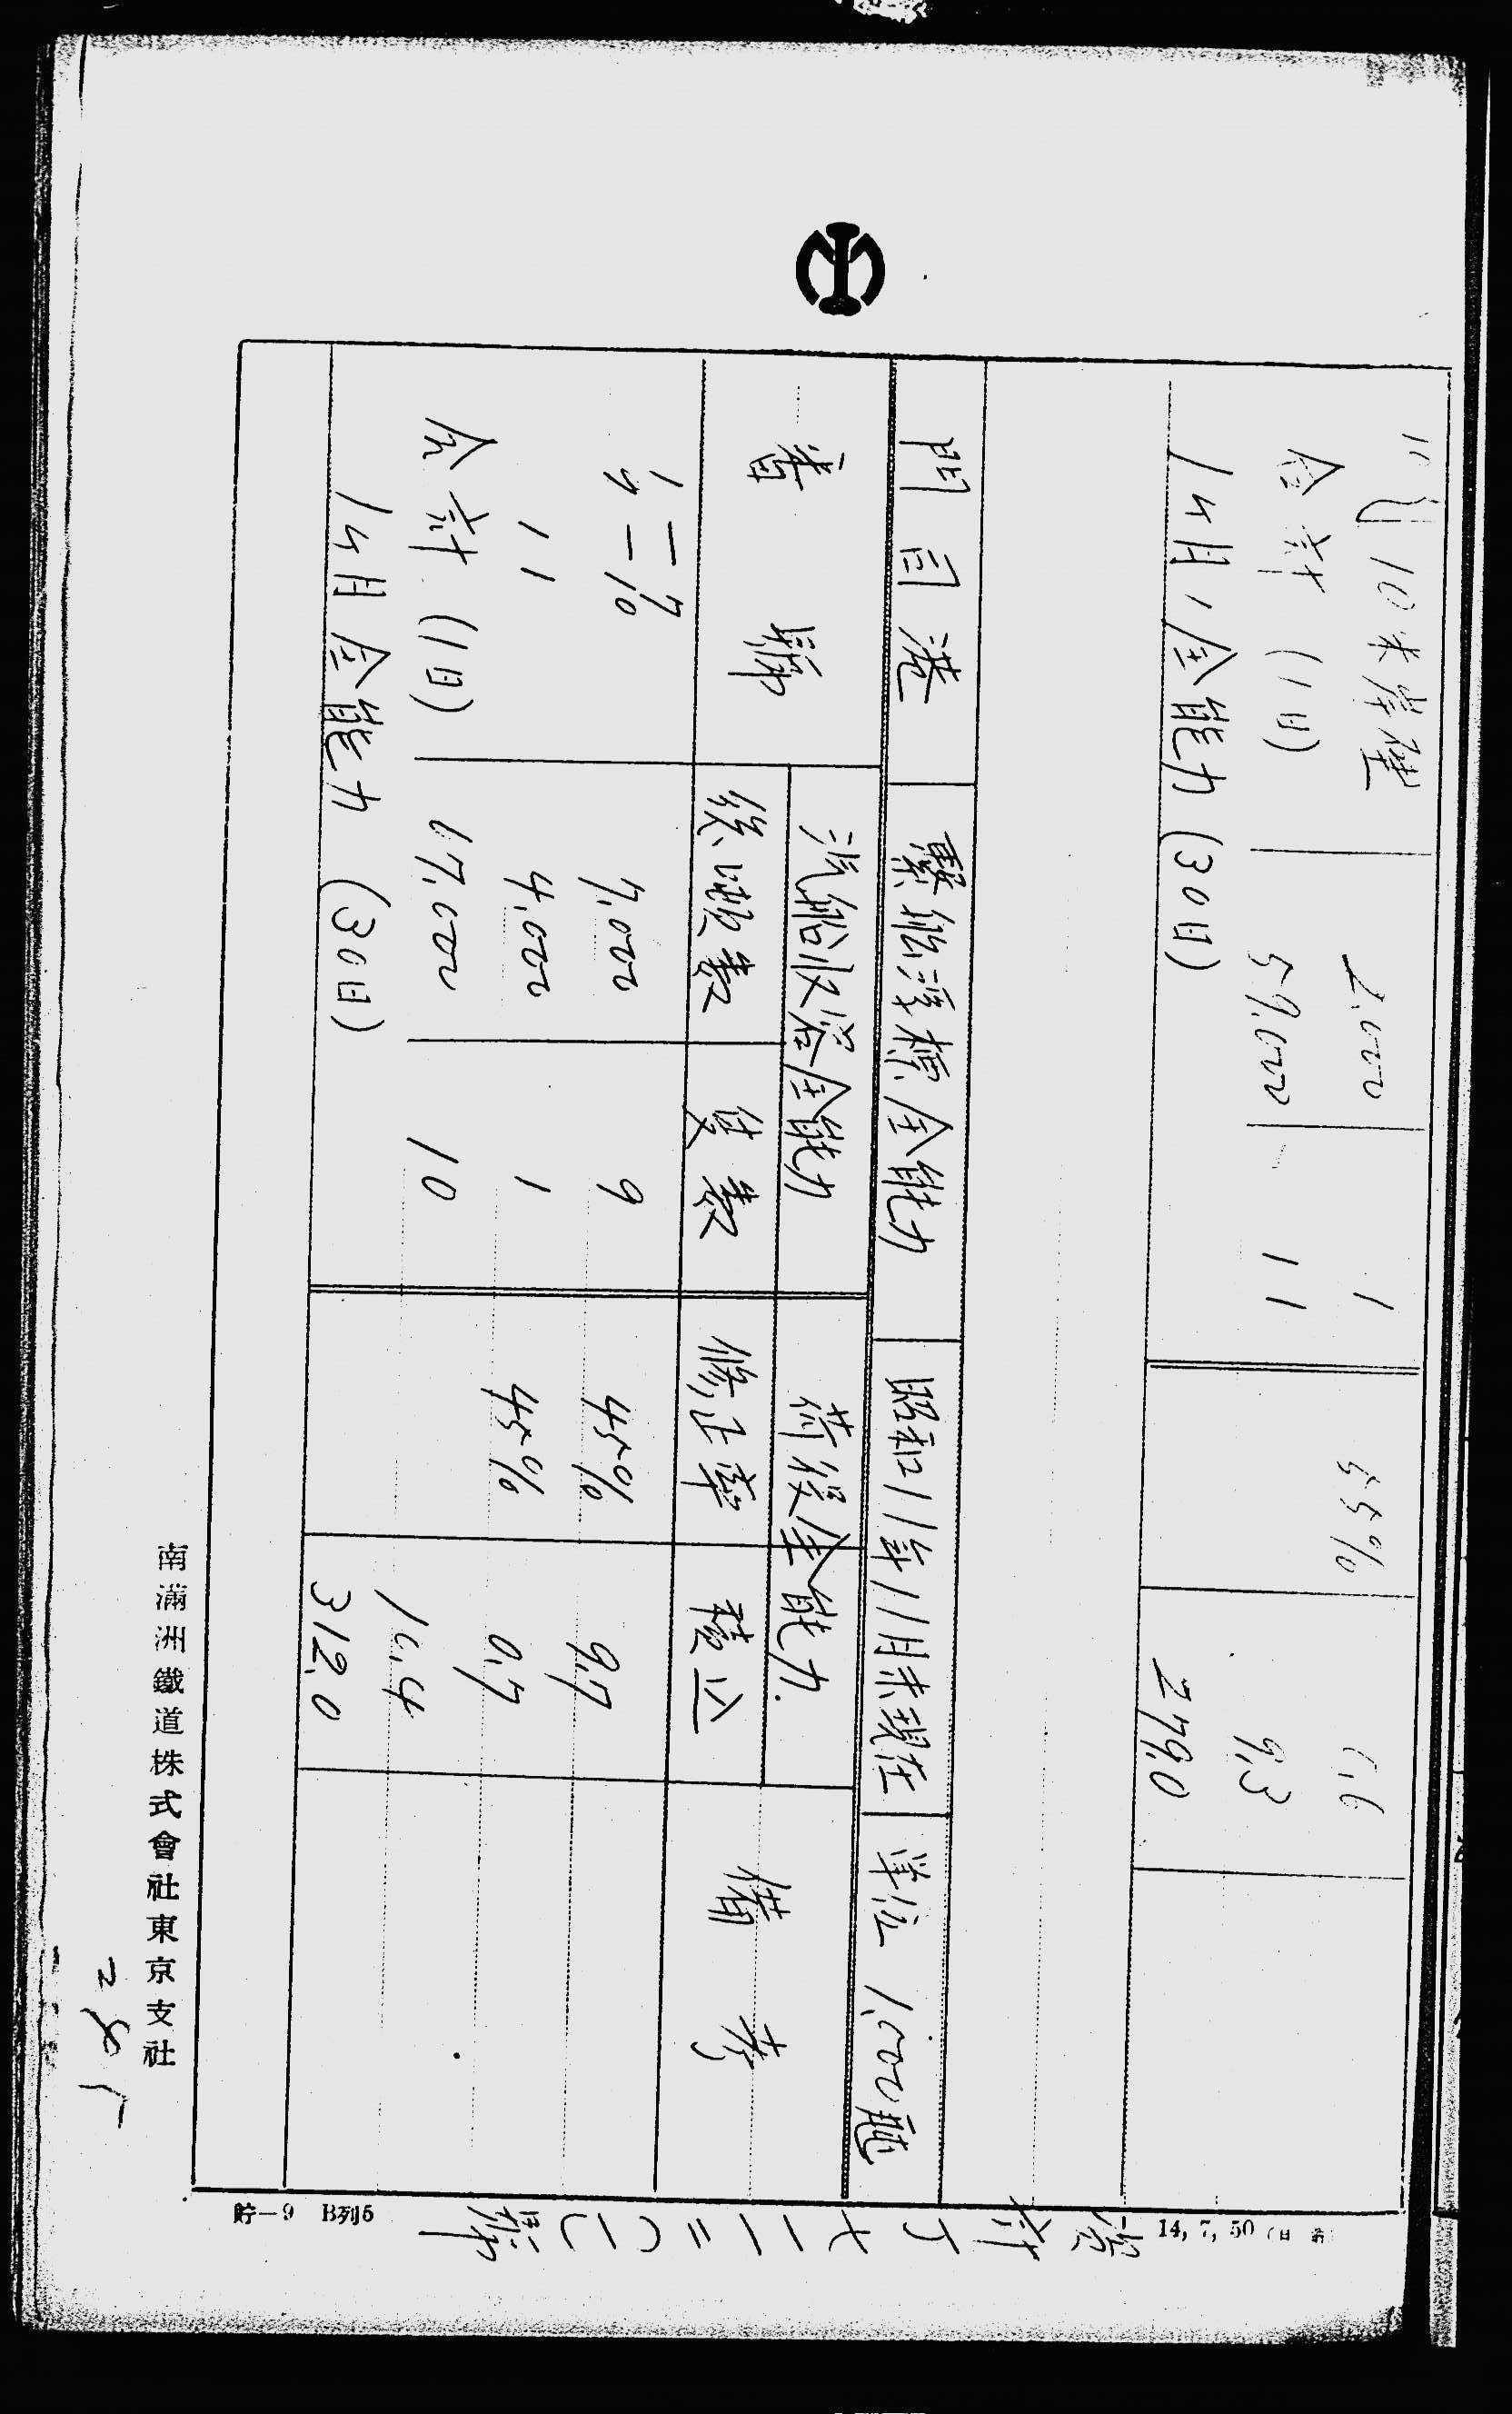 〃 10米岸壁 2,000 1 55% 1.6
合計 (1日) 59,000 11 9.3
1ヶ月ノ全能力 (30日) 279.0
門司港 繋船浮標全能力 昭和11年11月末現在 単位 1,000瓲
番號 汽船収容全能力 荷役全能力 備考
総噸数 隻数 修正率 積込
7,000 9 45% 9.7
11 4,000 1 45% 0.7
合計 (1日) 67,000 10 10.4
1ヶ月全能力 (30日) 312.0
南滿洲鐵道株式會社東京支社
貯—9 B列5
14, 7, 50